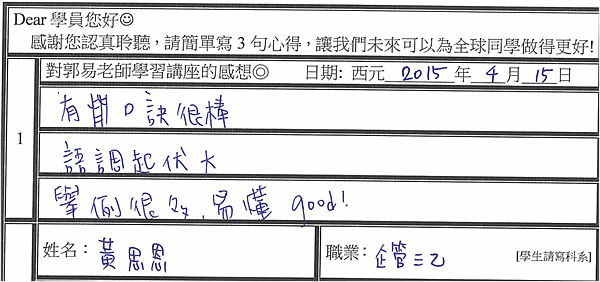 Dear 學員您好☺
感謝您認真聆聽，請簡單寫 3 句心得，讓我們未來可以為全球同學做得更好!
對郭易老師學習講座的感想◎ 日期: 西元 2015 年 4 月 15 日
1
有背口訣很棒
語調起伏大
舉例很多，易懂 good!
姓名： 黃思恩
職業： 企管三乙 [學生請寫科系]